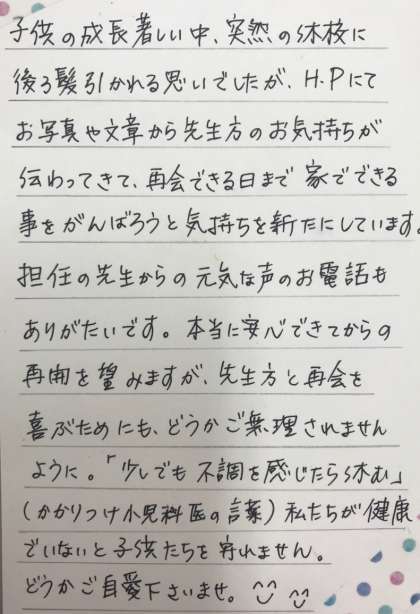 子供の成長著しい中、突然の休校に
後ろ髪引かれる思いでしたが、H.Pにて
お写真や文章から先生方のお気持ちが
伝わってきて、再会できる日まで家でできる
事をがんばろうと気持ちを新たにしています。
担任の先生からの元気な声のお電話も
ありがたいです。本当に安心できてからの
再開を望みますが、先生方と再会を
喜ぶためにも、どうかご無理されません
ように。「少しでも不調を感じたら休む」
(かかりつけ小児科医の言葉)私たちが健康
でいないと子供たちを守れません。
どうかご自愛下さいませ。^^ ^^